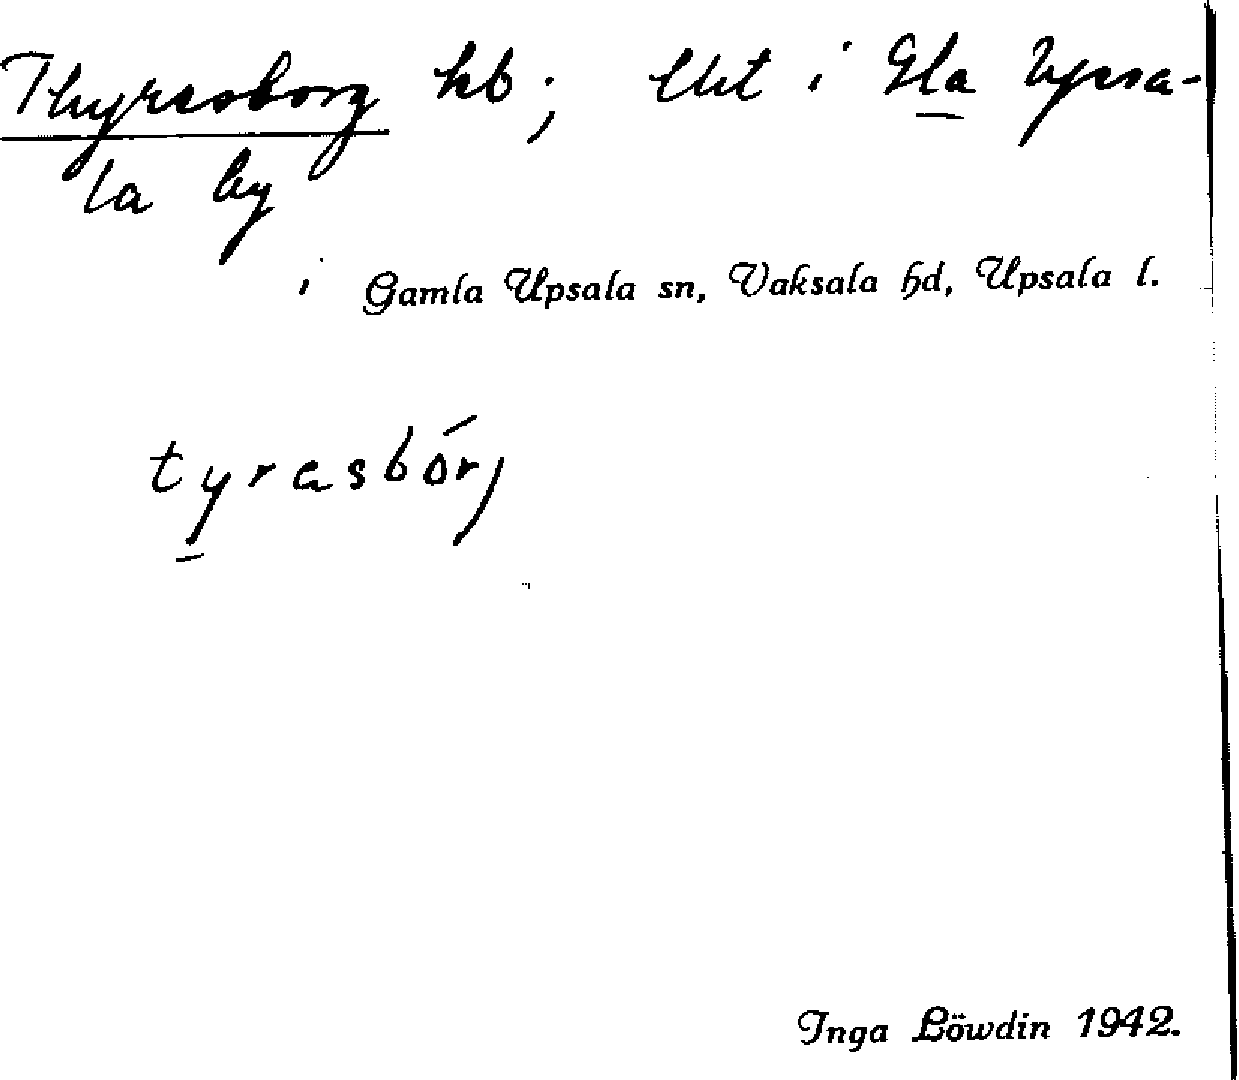 Thyrasborg hb; lht i Gla Upsa-
la by
i Gamla Upsala sn, Vaksala hd, Upsala l.
tyrasbórj
Inga Löwdin 1942.